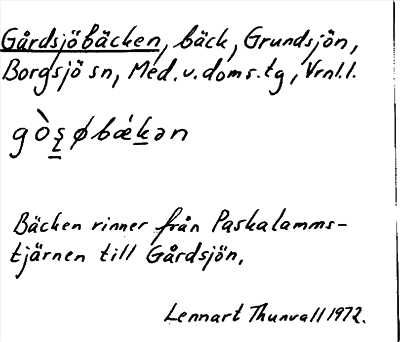 Gårdsjöbäcken, bäck, Grundsjön,
Borgsjö sn, Med. v. doms. tg, Vrnl. l.
Bäcken rinner från Paskalamms-
tjärnen till Gårdsjön.
Lennart Thunvall 1972.